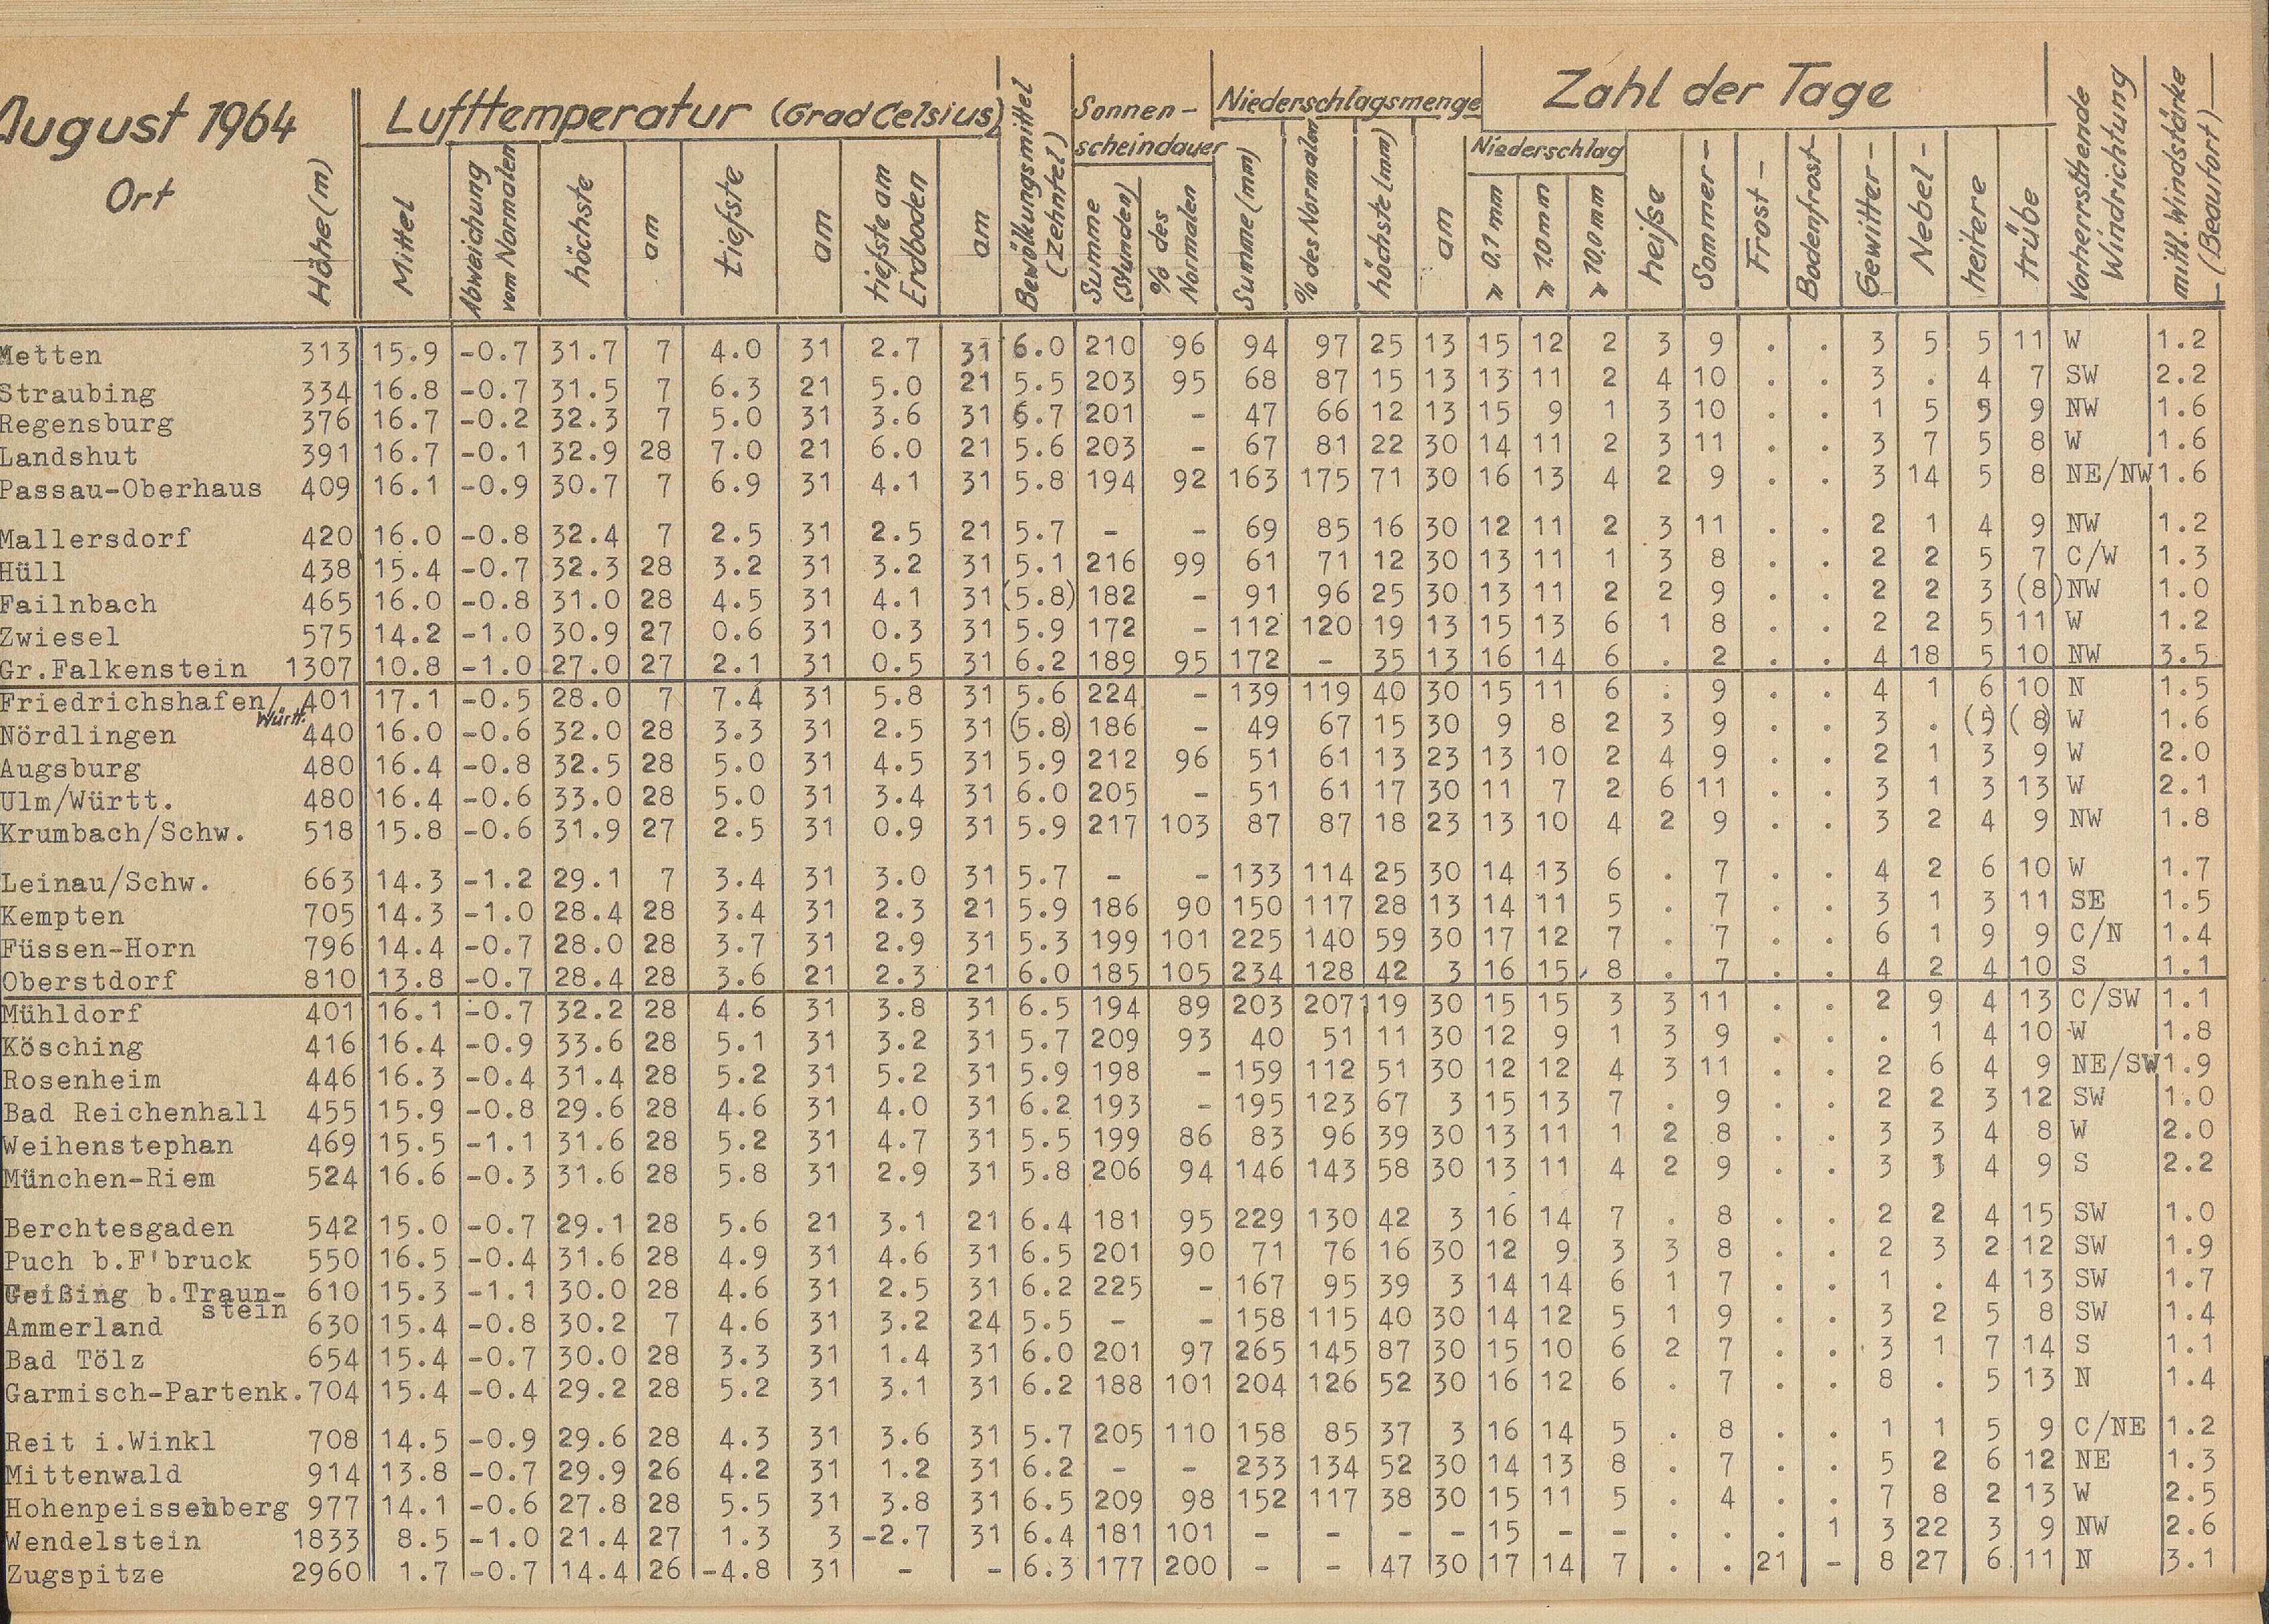 August 1964
Ort
Höhe (m)
Lufttemperatur (Grad Celsius)
Mittel
Abweichung vom Normalen
höchste
am
tiefste
am
tiefste am Erdboden
am
Bewölkungsmittel (Zehntel)
Sonnen-
scheindauer
Summe (Stunden)
% des Normalen
Niederschlagsmenge
Summe (mm)
% des Normalen
höchste (mm)
am
Zahl der Tage
Niederschlag
≥ 0,1 mm
≥ 1,0 mm
≥ 10,0 mm
heiße
Sommer-
Frost-
Bodenfrost-
Gewitter-
Nebel-
heitere
trübe
Vorherrsthende Windrichtung
mittl. Windstärke (Beaufort)
Metten 313 15.9 -0.7 31.7 7 4.0 31 2.7 31 6.0 210 96 94 97 25 13 15 12 2 3 9 . . 3 5 5 11 W 1.2
Straubing 334 16.8 -0.7 31.5 7 6.3 21 5.0 21 5.5 203 95 68 87 15 13 13 11 2 4 10 . . 3 . 4 7 SW 2.2
Regensburg 376 16.7 -0.2 32.3 7 5.0 31 3.6 31 6.7 201 - 47 66 12 13 15 9 1 3 10 . . 1 5 9 NW 1.6
Landshut 391 16.7 -0.1 32.9 28 7.0 21 6.0 21 5.6 203 - 67 81 22 30 14 11 2 3 11 . . 3 7 5 8 W 1.6
Passau-Oberhaus 409 16.1 -0.9 30.7 7 6.9 31 4.1 31 5.8 194 92 163 175 71 30 16 13 4 2 9 . . 3 14 5 8 NE/NW 1.6
Mallersdorf 420 16.0 -0.8 32.4 7 2.5 31 2.5 21 5.7 - - 69 85 16 30 12 11 2 3 11 . . 2 1 4 9 NW 1.2
Hüll 438 15.4 -0.7 32.3 28 3.2 31 3.2 31 5.1 216 99 61 71 12 30 13 11 1 3 8 . . 2 2 5 7 C/W 1.3
Failnbach 465 16.0 -0.8 31.0 28 4.5 31 4.1 31 (5.8) 182 - 91 96 25 30 13 11 2 2 9 . . 2 2 3 (8) NW 1.0
Zwiesel 575 14.2 -1.0 30.9 27 0.6 31 0.3 31 5.9 172 - 112 120 19 13 15 13 6 1 8 . . 2 2 5 11 W 1.2
Gr.Falkenstein 1307 10.8 -1.0 27.0 27 2.1 31 0.5 31 6.2 189 95 172 - 35 13 16 14 6 . 2 . . 4 18 5 10 NW 3.5
Friedrichshafen/Württ. 401 17.1 -0.5 28.0 7 7.4 31 5.8 31 5.6 224 - 139 119 40 30 15 11 6 . 9 . . 4 1 6 10 N 1.5
Nördlingen 440 16.0 -0.6 32.0 28 3.3 31 2.5 31 (5.8) 186 - 49 67 15 30 9 8 2 3 9 . . 3 . (5) (8) W 1.6
Augsburg 480 16.4 -0.8 32.5 28 5.0 31 4.5 31 5.9 212 96 51 61 13 23 13 10 2 4 9 . . 2 1 3 9 W 2.0
Ulm/Württ. 480 16.4 -0.6 33.0 28 5.0 31 3.4 31 6.0 205 - 51 61 17 30 11 7 2 6 11 . . 3 1 3 13 W 2.1
Krumbach/Schw. 518 15.8 -0.6 31.9 27 2.5 31 0.9 31 5.9 217 103 87 87 18 23 13 10 4 2 9 . . 3 2 4 9 NW 1.8
Leinau/Schw. 663 14.3 -1.2 29.1 7 3.4 31 3.0 31 5.7 - - 133 114 25 30 14 13 6 . 7 . . 4 2 6 10 W 1.7
Kempten 705 14.3 -1.0 28.4 28 3.4 31 2.3 21 5.9 186 90 150 117 28 13 14 11 5 . 7 . . 3 1 3 11 SE 1.5
Füssen-Horn 796 14.4 -0.7 28.0 28 3.7 31 2.9 31 5.3 199 101 225 140 59 30 17 12 7 . 7 . . 6 1 9 9 C/N 1.4
Oberstdorf 810 13.8 -0.7 28.4 28 3.6 21 2.3 21 6.0 185 105 234 128 42 3 16 15 8 . 7 . . 4 2 4 10 S 1.1
Mühldorf 401 16.1 -0.7 32.2 28 4.6 31 3.8 31 6.5 194 89 203 207 119 30 15 15 3 3 11 . . 2 9 4 13 C/SW 1.1
Kösching 416 16.4 -0.9 33.6 28 5.1 31 3.2 31 5.7 209 93 40 51 11 30 12 9 1 3 9 . . . 1 4 10 W 1.8
Rosenheim 446 16.3 -0.4 31.4 28 5.2 31 5.2 31 5.9 198 - 159 112 51 30 12 12 4 3 11 . . 2 6 4 9 NE/SW 1.9
Bad Reichenhall 455 15.9 -0.8 29.6 28 4.6 31 4.0 31 6.2 193 - 195 123 67 3 15 13 7 . 9 . . 2 2 3 12 SW 1.0
Weihenstephan 469 15.5 -1.1 31.6 28 5.2 31 4.7 31 5.5 199 86 83 96 39 30 13 11 1 2 8 . . 3 3 4 8 W 2.0
München-Riem 524 16.6 -0.3 31.6 28 5.8 31 2.9 31 5.8 206 94 146 143 58 30 13 11 4 2 9 . . 3 4 9 S 2.2
Berchtesgaden 542 15.0 -0.7 29.1 28 5.6 21 3.1 21 6.4 181 95 229 130 42 3 16 14 7 . 8 . . 2 2 4 15 SW 1.0
Puch b.F'bruck 550 16.5 -0.4 31.6 28 4.9 31 4.6 31 6.5 201 90 71 76 16 30 12 9 3 3 8 . . 2 3 2 12 SW 1.9
b.Traun-stein 610 15.3 -1.1 30.0 28 4.6 31 2.5 31 6.2 225 - 167 95 39 3 14 14 6 1 7 . . 1 . 4 13 SW 1.7
Ammerland 630 15.4 -0.8 30.2 7 4.6 31 3.2 24 5.5 - - 158 115 40 30 14 12 5 1 9 . . 3 2 5 8 SW 1.4
Bad Tölz 654 15.4 -0.7 30.0 28 3.3 31 1.4 31 6.0 201 97 265 145 87 30 15 10 6 2 7 . . 3 1 7 14 S 1.1
Garmisch-Partenk. 704 15.4 -0.4 29.2 28 5.2 31 3.1 31 6.2 188 101 204 126 52 30 16 12 6 . 7 . . 8 . 5 13 N 1.4
Reit i.Winkl 708 14.5 -0.9 29.6 28 4.3 31 3.6 31 5.7 205 110 158 85 37 3 16 14 5 . 8 . . 1 1 5 9 C/NE 1.2
Mittenwald 914 13.8 -0.7 29.9 26 4.2 31 1.2 31 6.2 - - 233 134 52 30 14 13 8 . 7 . . 5 2 6 12 NE 1.3
Hohenpeissenberg 977 14.1 -0.6 27.8 28 5.5 31 3.8 31 6.5 209 98 152 117 38 30 15 11 5 . 4 . . 7 8 2 13 W 2.5
Wendelstein 1833 8.5 -1.0 21.4 27 1.3 3 -2.7 31 6.4 181 101 - - - - 15 - - . . . 1 3 22 3 9 NW 2.6
Zugspitze 2960 1.7 -0.7 14.4 26 -4.8 31 - - 6.3 177 200 - - 47 30 17 14 7 . . 21 - 8 27 6 11 N 3.1